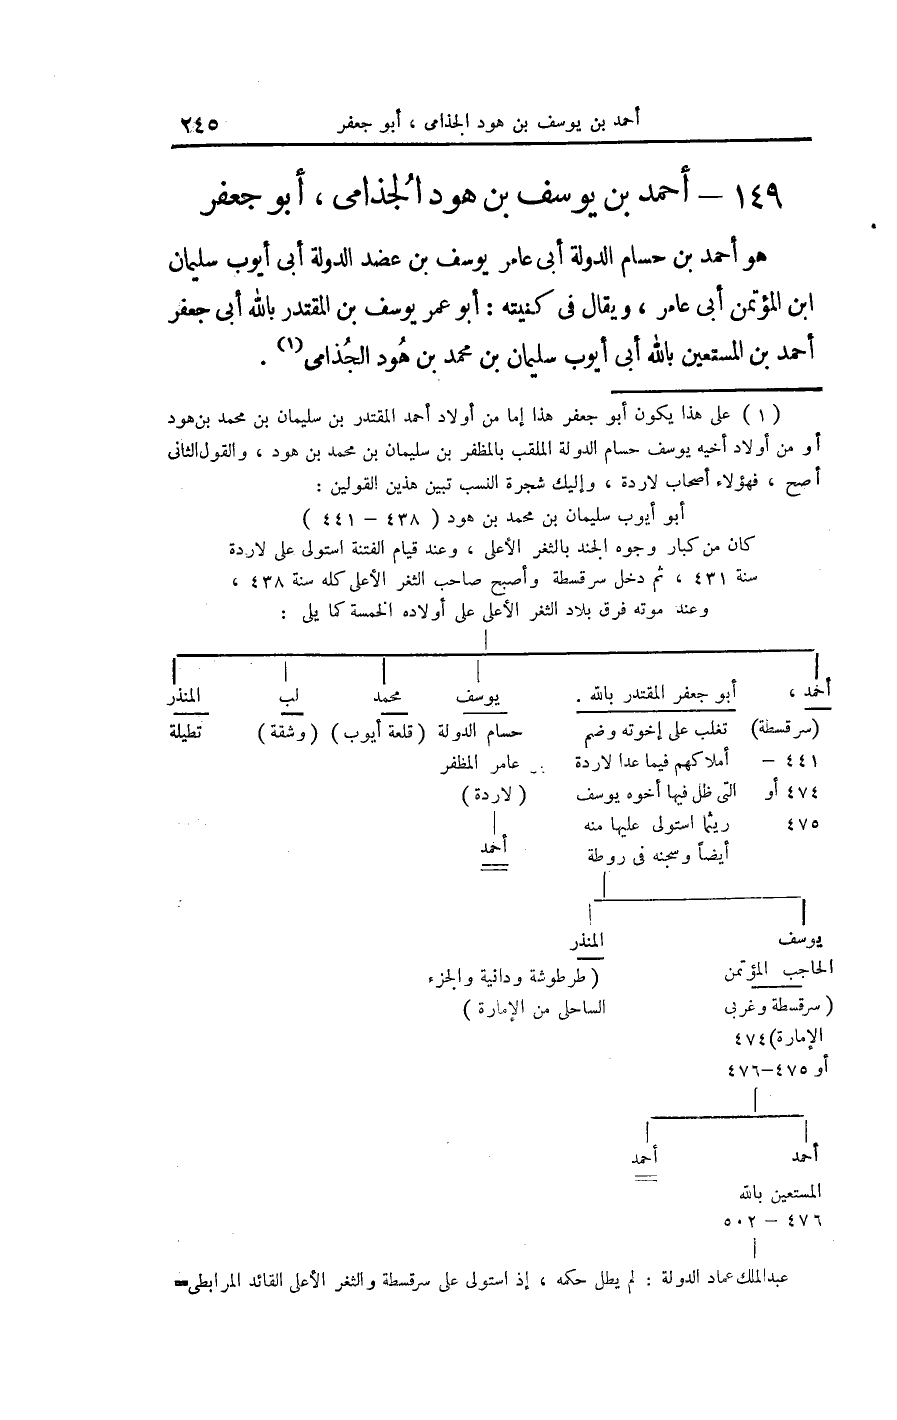 أحمد بن يوسف بن هود الجذامى ، أبو جعفر ٢٤٥
١٤٩ — أحمد بن يوسف بن هود الجُذامى ، أبو جعفر
هو أحمد بن حسام الدولة أبى عامر يوسف بن عضد الدولة أبى أيوب سليمان
ابن المؤتمن أبى عامر ، ويقال فى كنيته : أبو عمر يوسف بن المقتدر بالله أبى جعفر
أحمد بن المستعين بالله أبى أيوب سليمان بن محمد بن هُود الجُذامى (١) .
( ١ ) على هذا يكون أبو جعفر هذا إما من أولاد أحمد المقتدر بن سليمان بن محمد بن هود
أو من أولاد أخيه يوسف حسام الدولة الملقب بالمظفر بن سليمان بن محمد بن هود ، والقول الثانى
أصح ، فهؤلاء أصحاب لاردة ، وإليك شجرة النسب تبين هذين القولين :
أبو أيوب سليمان بن محمد بن هود ( ٤٣٨ — ٤٤١ )
كان من كبار وجوه الجند بالثغر الأعلى ، وعند قيام الفتنة استولى على لاردة
سنة ٤٣١ ، ثم دخل سرقسطة وأصبح صاحب الثغر الأعلى كله سنة ٤٣٨ ،
وعند موته فرق بلاد الثغر الأعلى على أولاده الخمسة كما يلى :
أحمد ، أبو جعفر المقتدر بالله . يوسف محمد لب المنذر
(سرقسطة) تغلب على إخوته وضم حسام الدولة ( قلعة أيوب ) ( وشقة ) تطيلة
٤٤١ — أملاكهم فيما عدا لاردة عامر المظفر
٤٧٤ أو التى ظل فيها أخوه يوسف ( لاردة )
٤٧٥ ريثما استولى عليها منه
أحمد
أيضاً وسجنه فى روطة
يوسف المنذر
الحاجب المؤتمن ( طرطوشة ودانية والجزء
( سرقسطة وغربى الساحلى من الإمارة )
الإمارة) ٤٧٤
أو ٤٧٥–٤٧٦
أحمد أحمد
المستعين بالله
٤٧٦ — ٥٠٢
عبد الملك عماد الدولة : لم يطل حكمه ، إذ استولى على سرقسطة والثغر الأعلى القائد المرابطى=